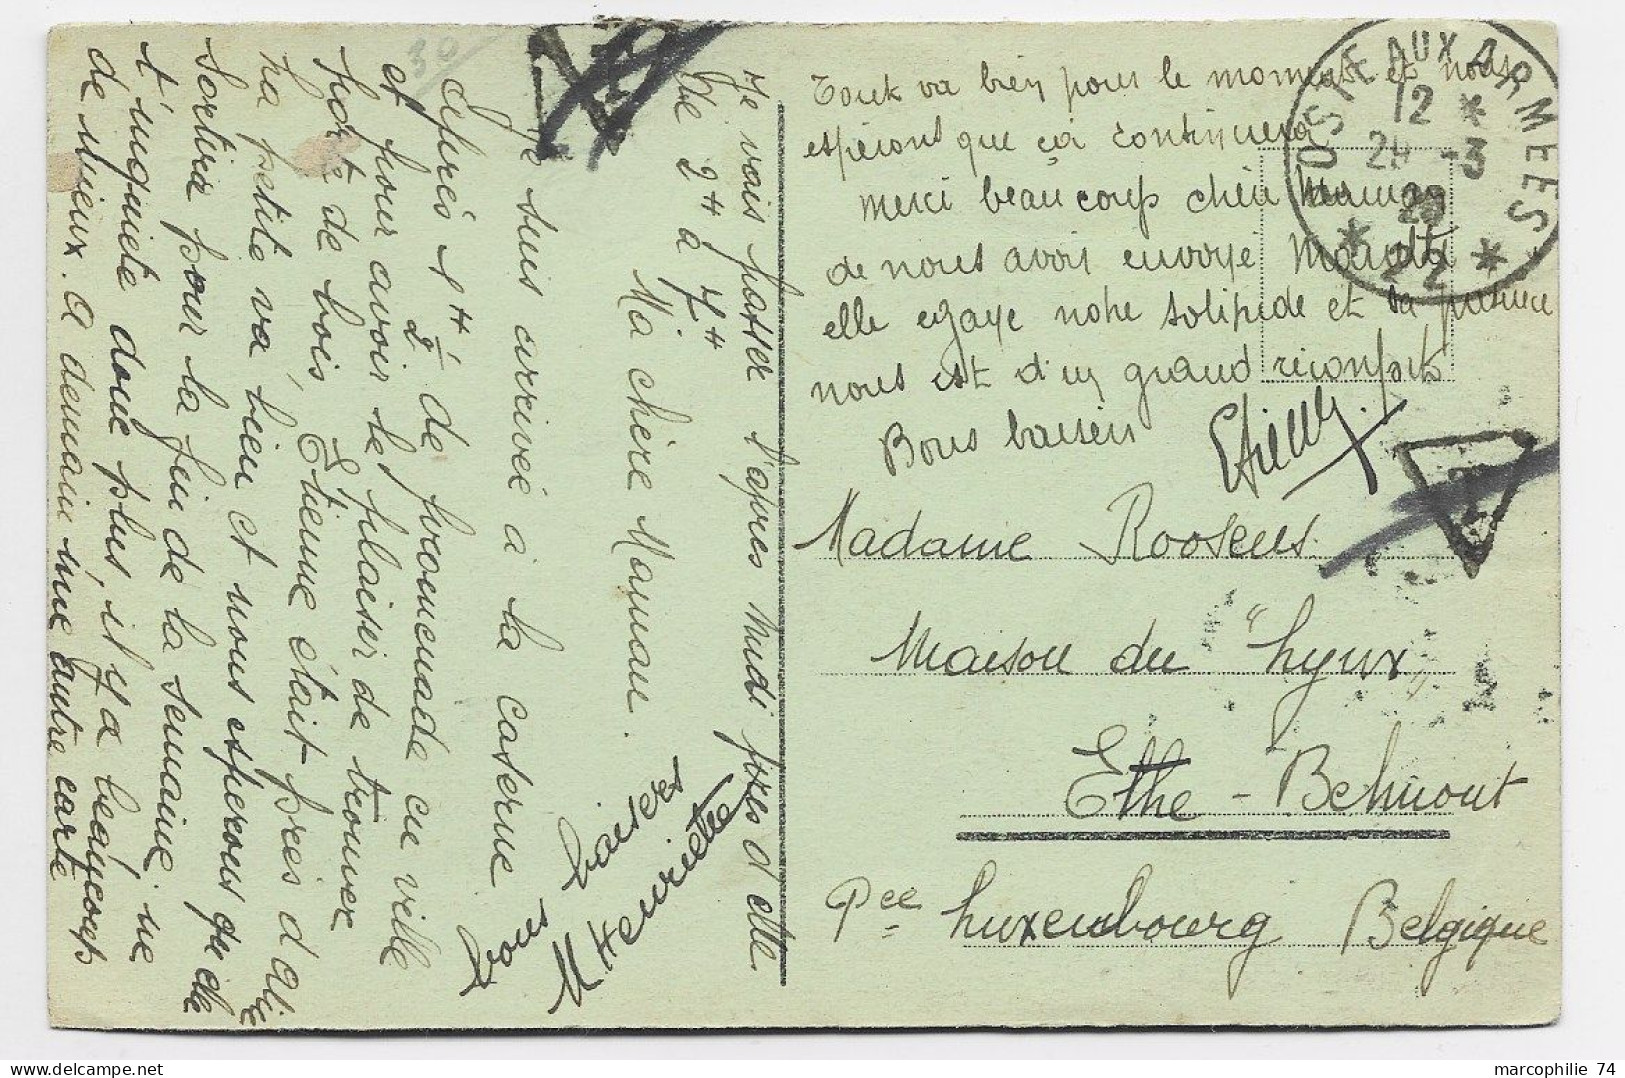 Je vais passer l'après midi près d'elle
de 2H à 7H
Ma chère Maman.
Je suis arrivé à la caserne
après 1H ½ de promenade en ville
et pour avoir le plaisir de trouver
porte de bois, Etienne était près d'elle
ha petite va bien et nous espérons qu'elle
sortira pour la fin de la semaine. ne
t'inquiete donc plus, il y a beaucoup
de mieux. A demain une autre carte
bons baisers
M Henriette
30
Tout va bien pour le moment et nous
espérons que ça continuera
Merci beaucoup chère Maman
de nous avoir envoyé
elle egaye notre solitude et sa présence
nous est d'un grand réconfort
Bons baisers
Etienne
POSTE AUX ARMEES
12 *
24 -3
* 22 *
Madame Roosens
Maison du "Lynx"
Ethe - Belmont
Pce Luxembourg Belgique
marcophilie 74